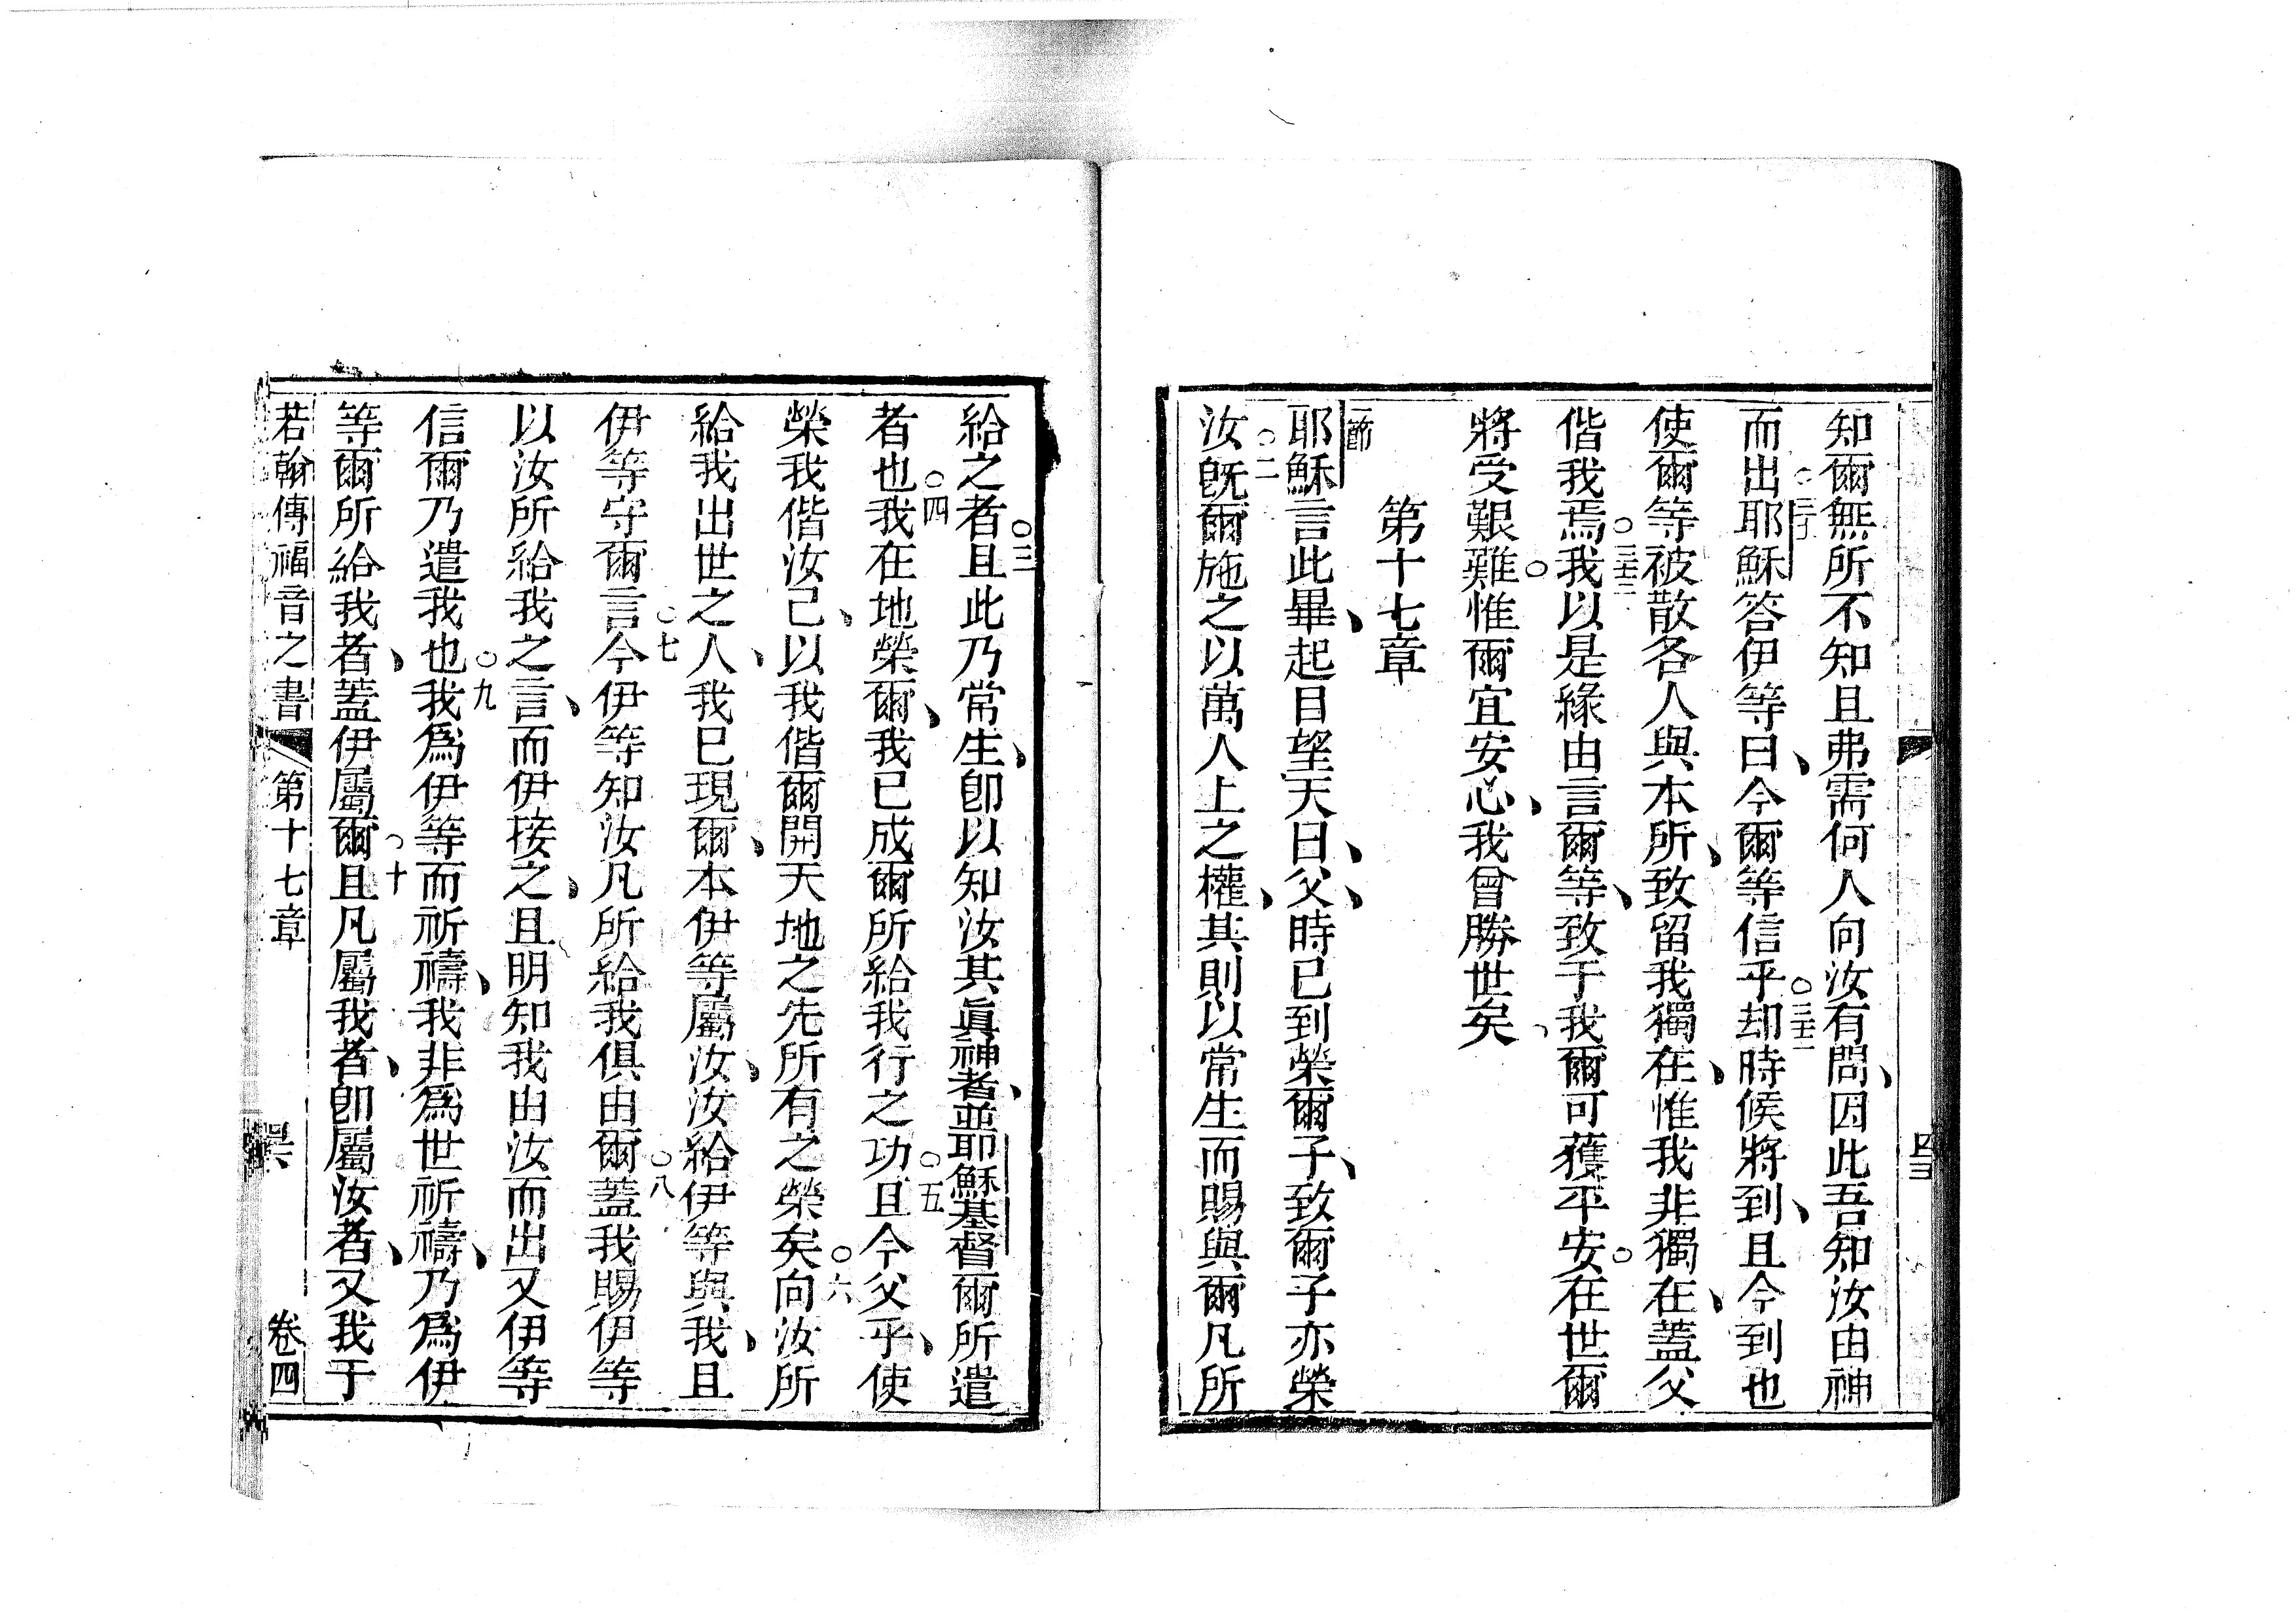 知爾無所不知且弗需何人向汝有問、因此吾知汝由神
而出耶穌答伊等曰、今爾等信乎却時候將到、且今到也
使爾等被散各人與本所、致留我獨在、惟我非獨在、蓋父
偕我焉我以是緣由言爾等、致于我爾可獲平安○在世爾
將受艱難○惟爾宜安心、我曾勝世矣、
第十七章
一節
耶穌言此畢、起目望天曰、父、時已到榮爾子、致爾子亦榮
○二
汝旣爾施之以萬人上之權、其則以常生而賜與爾凡所
○三
給之者且此乃常生、卽以知汝其眞神者、並耶穌基督爾所遣
○四 ○五
者也我在地榮爾、我已成爾所給我行之功且今父乎、使
○六
榮我偕汝己、以我偕爾開天地之先所有之榮矣向汝所
給我出世之人、我已現爾、本伊等屬汝、汝給伊等與我、且
○七 ○八
伊等守爾言今伊等知汝凡所給我俱由爾蓋我賜伊等
以汝所給我之言、而伊接之、且明知我由汝而出又伊等
○九
信爾乃遣我也我爲伊等而祈禱、我非爲世祈禱、乃爲伊
○十
等爾所給我者、蓋伊屬爾且凡屬我者、卽屬汝者、又我于
若翰傳福音之書 第十七章 卷四